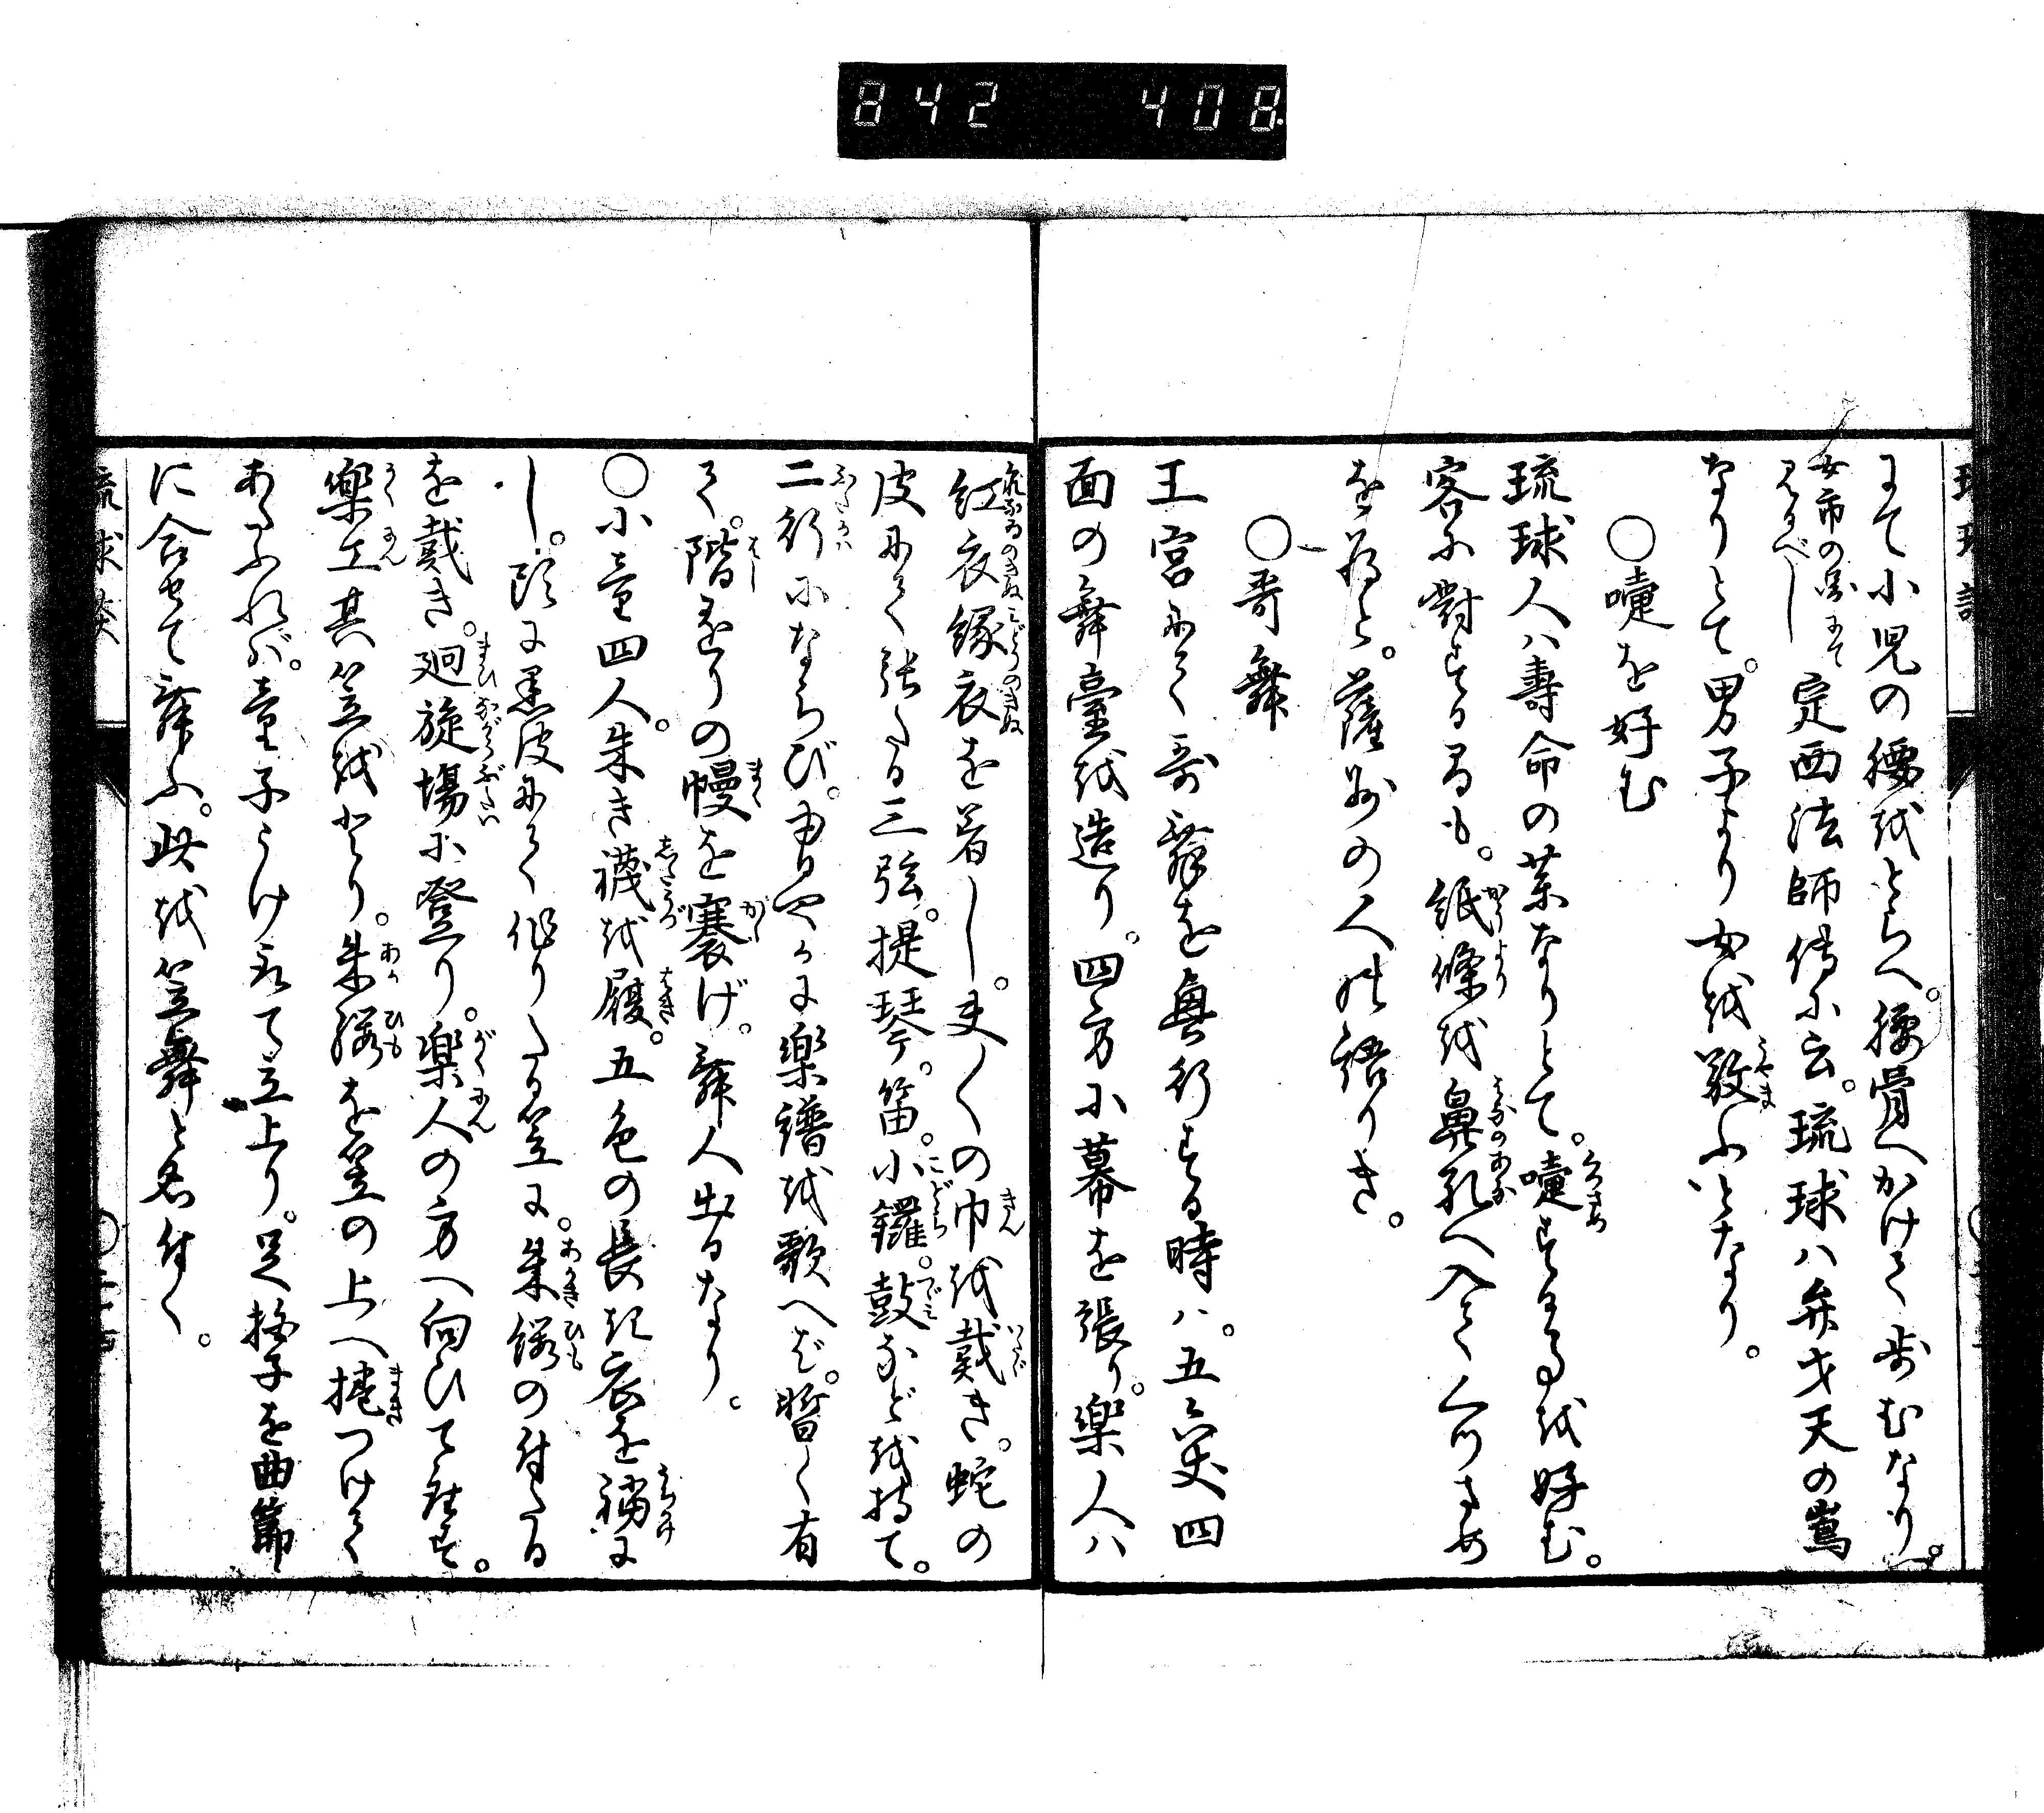 842 408
にて小児の腰をとらへ。腰骨へかけて歩むなり。
女市の図にて見るべし 定西法師傳に云。琉球ハ弁才天の嶌
なりとて。男子より女を敬ふとなり。
○嚔を好む
琉球人ハ壽命の薬なりとて。嚔することを好む。
客に對するにも。紙條を鼻孔へ入てくつさめ
をなすと。薩州の人の語りき。
○哥舞
王宮にて哥舞を興行する時ハ。五六間四
面の舞臺を造り。四方に幕を張り。楽人ハ
紅衣緑衣を着し。更〳〵の巾を戴き。蛇の
皮にて張たる三弦。提琴。笛。小鑼。鼓などを持て。
二行にならび。ゆるやかに楽譜を歌へば。暫く有
て。階をりの幔を褰げ。舞人出るなり。
○小童四人。朱き襪を履。五色の長き衣を裲に
し。頭に黒皮にて作りたる笠に。朱纓の付たる
を戴き。廻旋場に登り。楽人の方へ向ひて座す。
樂工其笠をとり。朱纓を笠の上へ捲つけて
あたふれバ。童子うけ取て立上り。足拍子を曲節
に合せて舞ふ。此を笠舞と名付く。
琉球談